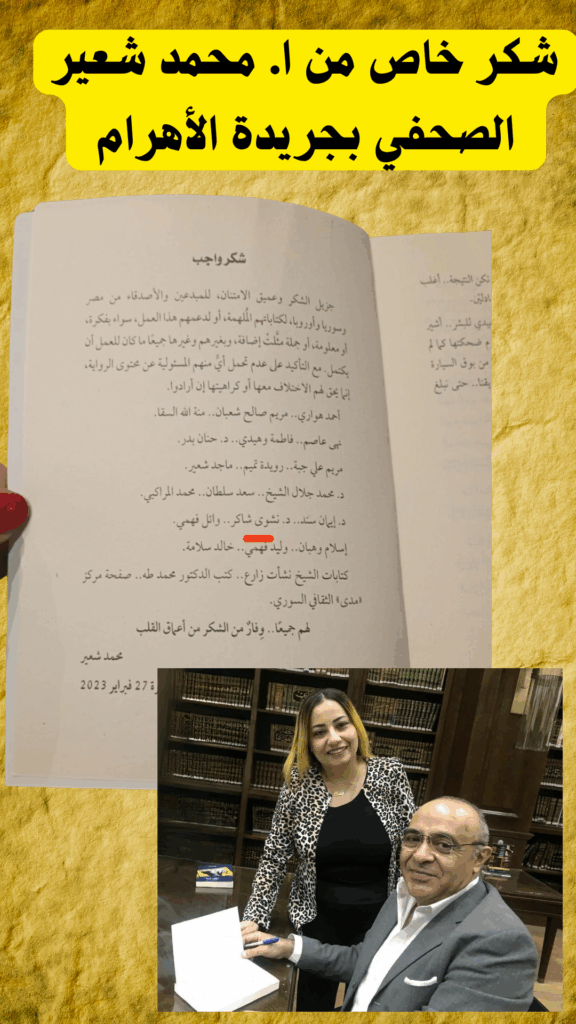 شكر خاص من ا. محمد شعير
الصحفي بجريدة الأهرام
شكر واجب
جزيل الشكر وعميق الامتنان، للمبدعين والأصدقاء من مصر
وسوريا وأوروبا، لكتاباتهم المُلهمة، أو لدعمهم هذا العمل، سواء بفكرة،
أو معلومة، أو جملة مثَّلت إضافة، وبغيرهم وغيرها جميعًا ما كان للعمل أن
يكتمل. مع التأكيد على عدم تحمل أيٍّ منهم المسئولية عن محتوى الرواية،
إنما يحق لهم الاختلاف معها أو كراهيتها إن أرادوا.
أحمد هواري.. مريم صالح شعبان.. منة الله السقا.
نهى عاصم.. فاطمة وهيدي.. د. حنان بدر.
مريم علي جبة.. رويدة تميم.. ماجد شعير.
د. محمد جلال الشيخ.. سعد سلطان.. محمد المراكبي.
د. إيمان سند.. د. نشوى شاكر.. وائل فهمي.
إسلام وهبان.. وليد فهمي.. خالد سلامة.
كتابات الشيخ نشأت زارع.. كتب الدكتور محمد طه.. صفحة مركز
«مدى» الثقافي السوري.
لهم جميعًا.. وِفارٌ من الشكر من أعماق القلب
محمد شعير
27 فبراير 2023
تكن النتيجة.. أغلب
يدي للبشر.. أشير
م ضحكتها كما لم
من بوق السيارة
يقنا.. حتى نبلغ